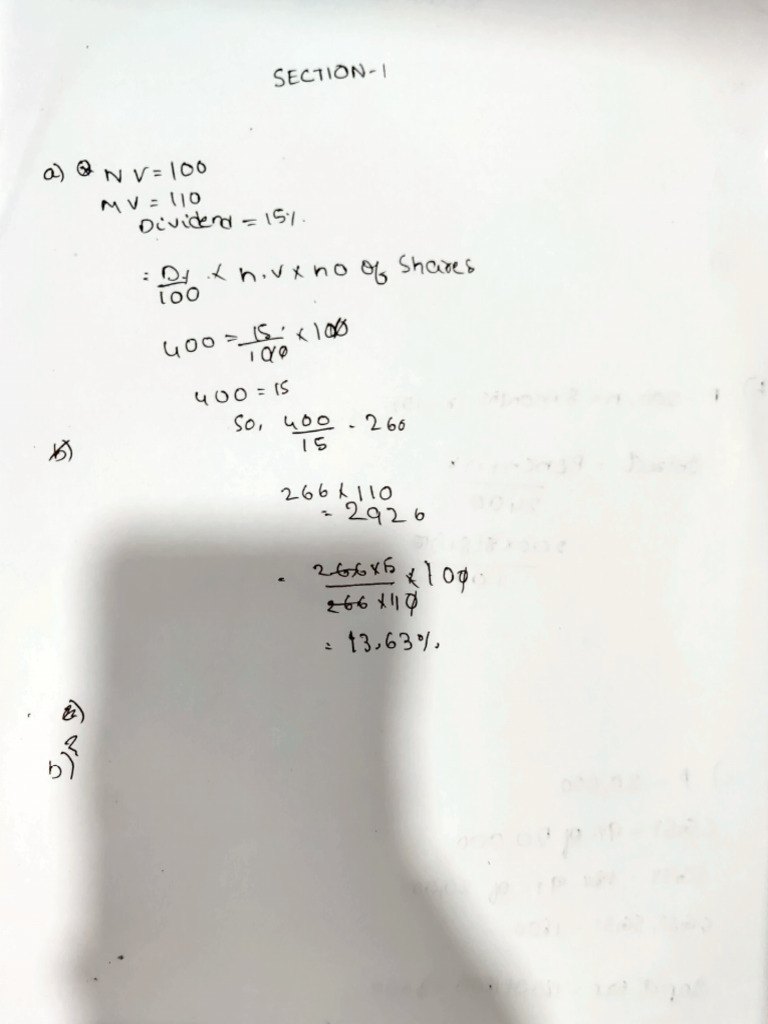 SECTION-1
a) NV = 100
MV = 110
Dividend = 15%.
= D% / 100 × n.v × no of Shares
400 = 15 / 100 × 100
400 = 15
So, 400 / 15 = 266
b)
266 × 110
= 2926
= 266×15 / 266×110 × 100
= 13.63%.
b)